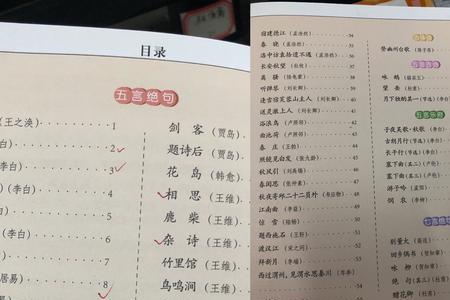 目录
五言绝句
(王之涣) 1
白) 2
李白) 3
(李白) 4
白) 5
(李白) 6
白) 7
居易) 8
剑 客 (贾岛)
题诗后 (贾岛)
花 岛 (韩愈)
相 思 (王维)
鹿 柴 (王维)
杂 诗 (王维)
竹里馆 (王维)
鸟鸣涧 (王维)
宿建德江 (孟浩然) 34
春 晓 (孟浩然) 35
洛中访袁拾遗不遇 (孟浩然) 36
长安秋望 (杜牧) 37
听弹琴 (刘长卿) 39
逢雪宿芙蓉山主人 (刘长卿) 40
送灵澈上人 (刘长卿) 41
曲池荷 (卢照邻) 43
春 庄 (王勃) 44
照镜见白发 (张九龄) 45
秋风引 (刘禹锡) 46
春闺思 (张仲素) 47
秋夜寄邱二十二员外 (韦应物) 48
江南曲 (李益) 49
题西施石 (王轩) 51
渡汉江 (宋之问) 52
拜新月 (李端) 53
西过渭州,见渭水思秦川 (岑参)
登幽州台歌 (陈子昂)
咏 鹅 (骆宾王)
望 岳 (杜甫)
月下独酌·其一(节选) (李白)
五言乐府
子夜吴歌·秋歌 (李白)
古朗月行 (节选) (李白)
长干行 (节选) (李白)
塞下曲 (其二) (卢纶)
塞下曲 (其三) (卢纶)
游子吟 (孟郊)
悯 农 (李绅)
七言绝句
别董大 (高适)
回乡偶书 (贺知章)
咏 柳 (贺知章)
绝 句 (其三) (杜甫)
赠花卿 (杜甫)